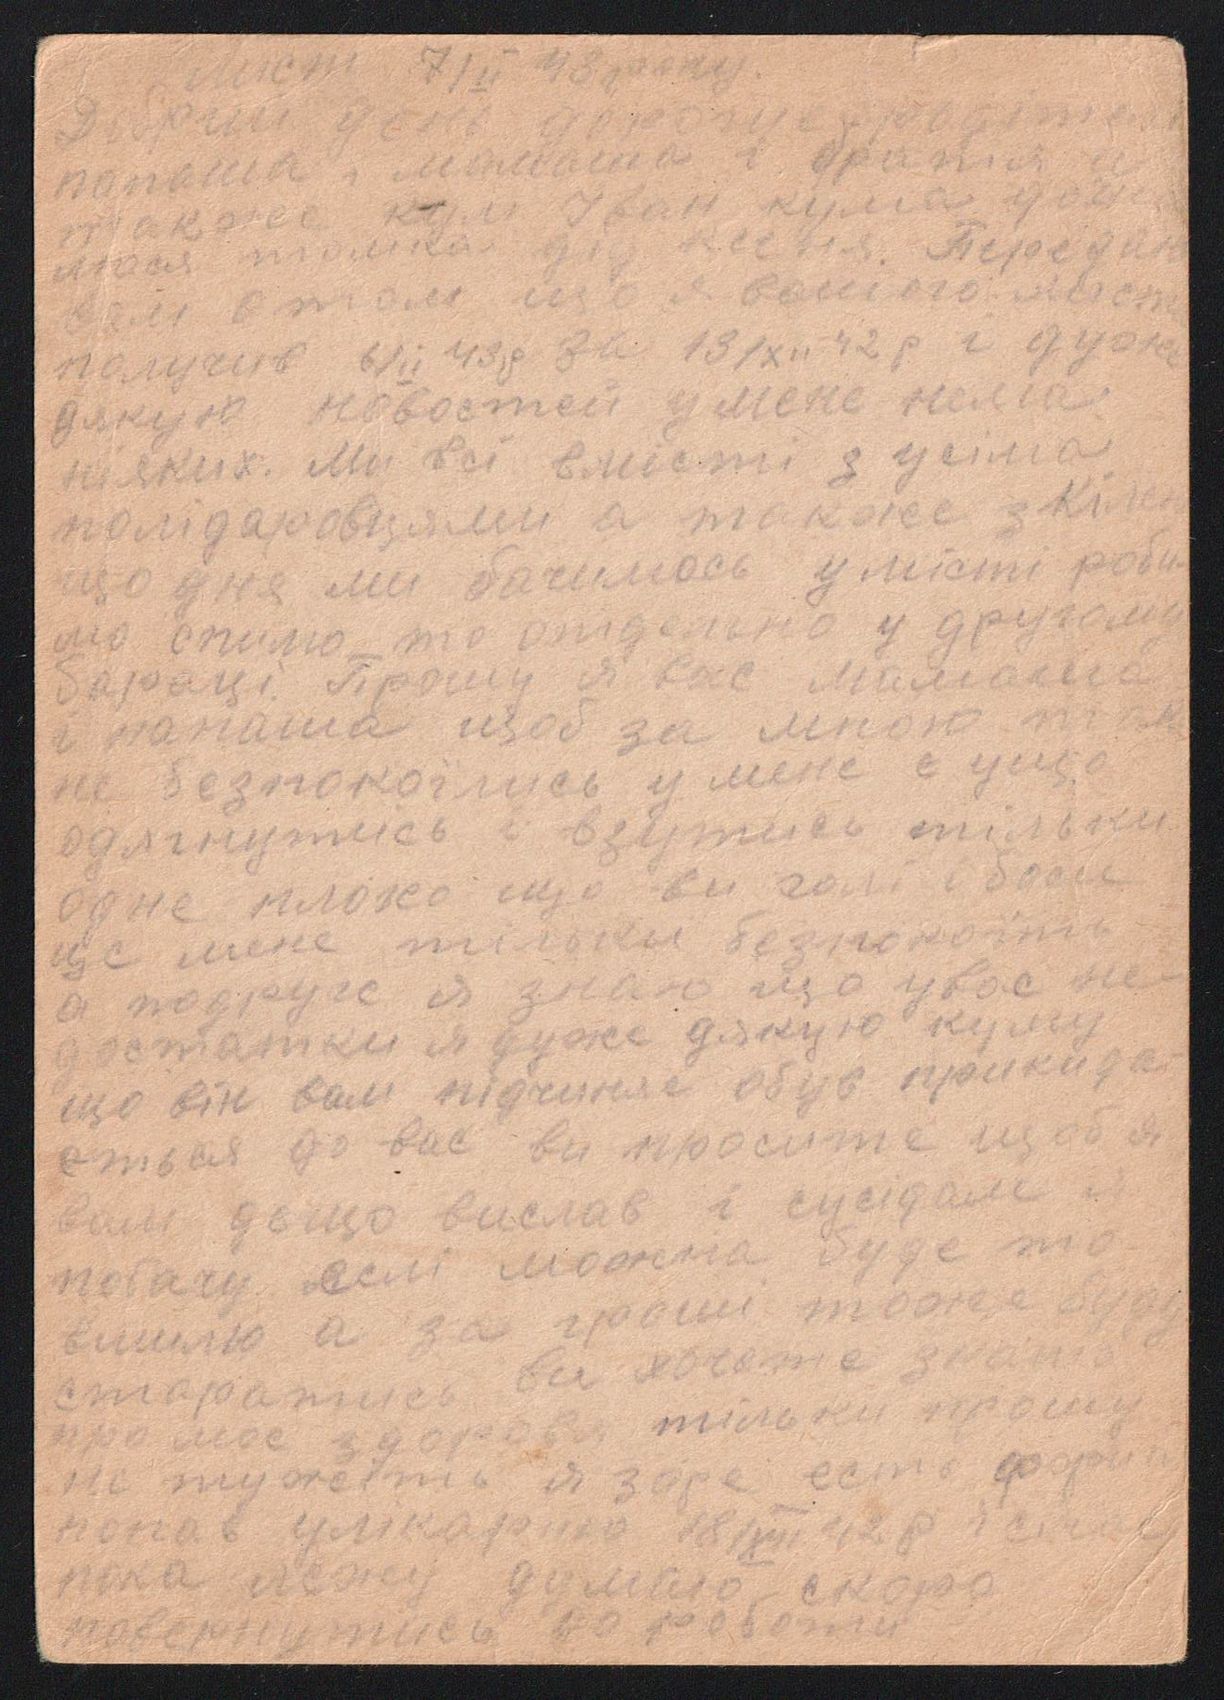 лист 7/II 43 року.
Добрий день дорогие родітелі
папаша, мамаша і братія а
також кум Іван кума
люся томка дід ксеня. Передаю
вам о том що я вашого листа
получив 6/II 43р за 13/XII 42р і дуже
дякую новостей у мене нема
ніяких. Ми всі вмісті з усіма
полідаровцями а також з
що дня ми бачимось у місті роби-
мо спимо то отдельно у другому
бараці. Прошу я вас мамаша
і папаша щоб за мною
не безпокоїлись у мене є ущо
одягнутись і взутись тільки
одне плохо що ви голі і босі
це мене тільки безпокоїть
а подруге я знаю що увас не-
достатки я дуже дякую куму
що він вам підчиняє обув прикида-
ється до вас ви просите щоб я
вам дещо вислав і сусідам я
побачу еслі можна буде то
вишлю а за гроші тоже буду
старатись ви хочете знать
про моє здоровя тільки прошу
не тужіть я
попав улікарню 18/XII 42р і січас
пока лежу думаю скоро
повернутись до роботи